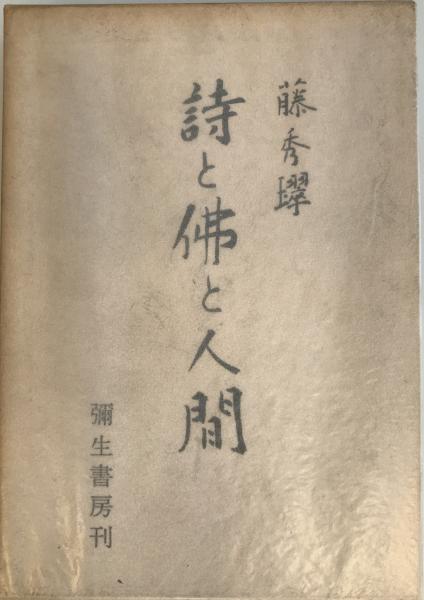 藤秀璻
詩と佛と人間
彌生書房刊